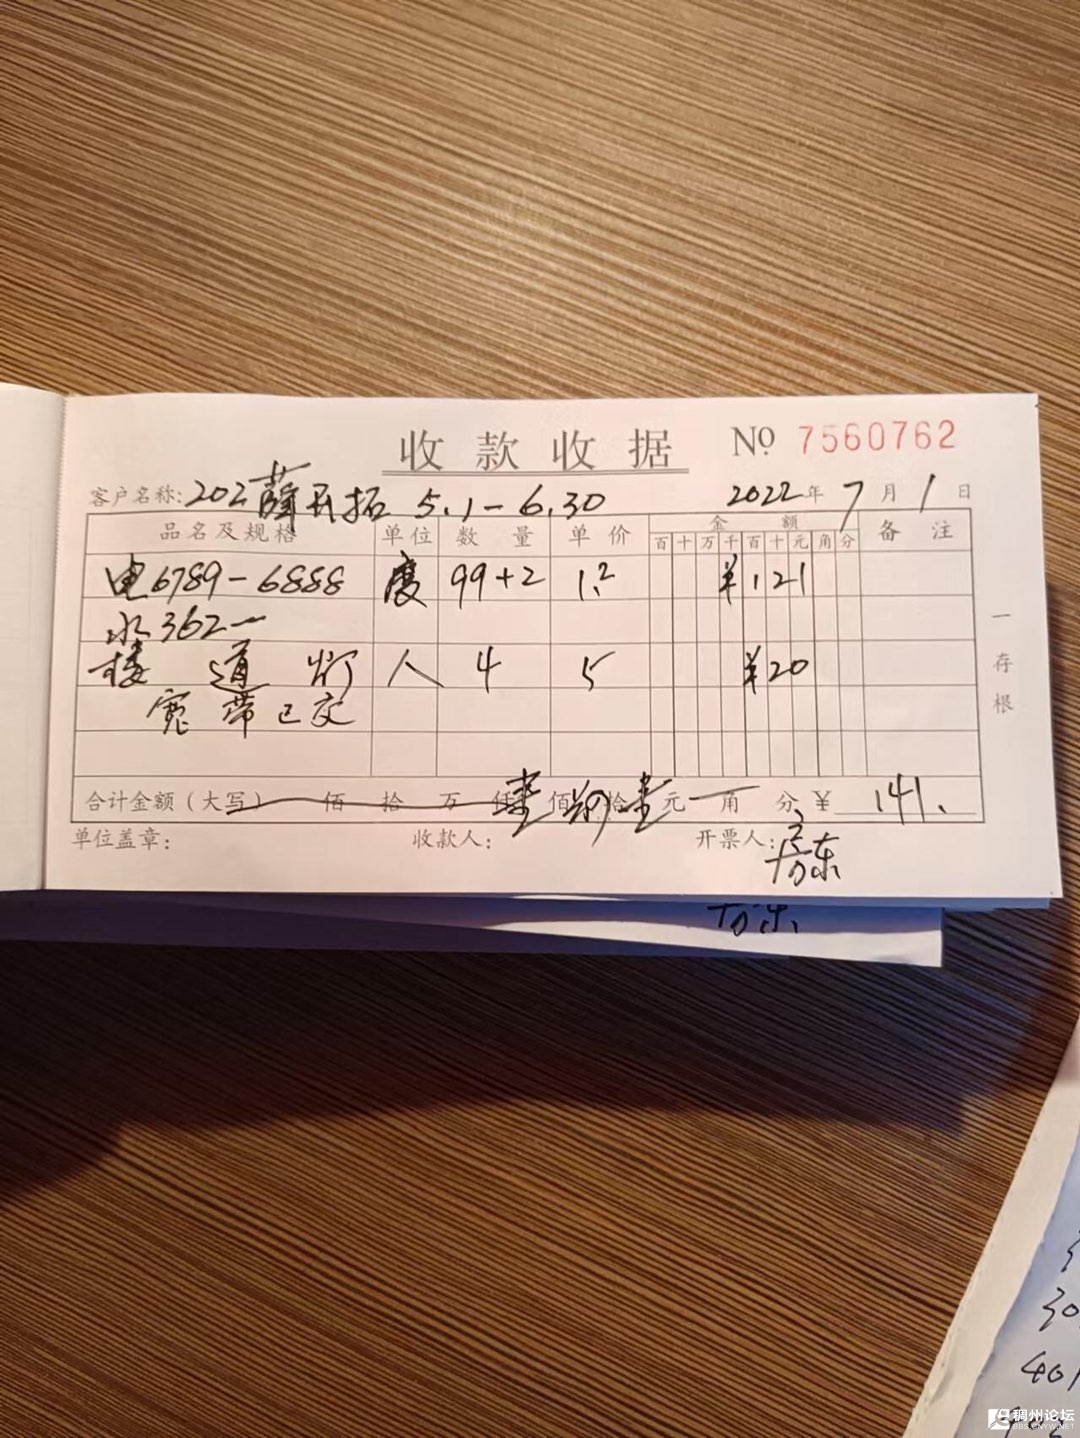 收款收据 № 7560762
客户名称: 202 薛开拓 5.1-6.30 2022年7月1日
品名及规格 单位 数量 单价 金额 备注
百十万千百十元角分
电6789-6888 度 99+2 1.2 ¥121
水362-
楼道灯 人 4 5 ¥20
宽带已交
合计金额(大写) 佰 拾 万 仟 壹 佰 肆 拾 壹 元 角 分 ¥ 141.
单位盖章: 收款人: 开票人: 房东
一存根
房东
30
401
稠州论坛
BBS.CNYW.NET